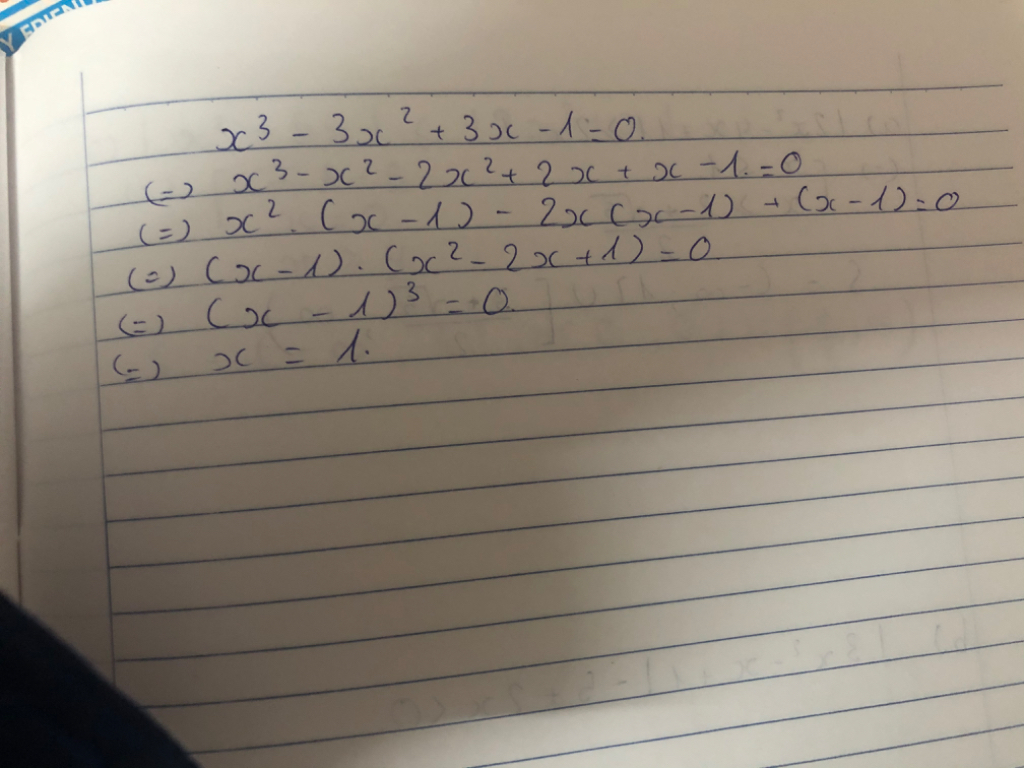 Y FRIEND
x³ - 3x² + 3x - 1 = 0.
(=) x³ - x² - 2x² + 2x + x - 1. = 0
(=) x² . (x - 1) - 2x (x - 1) + (x - 1) = 0
(=) (x - 1) . (x² - 2x + 1) = 0
(=) (x - 1)³ = 0.
(=) x = 1.